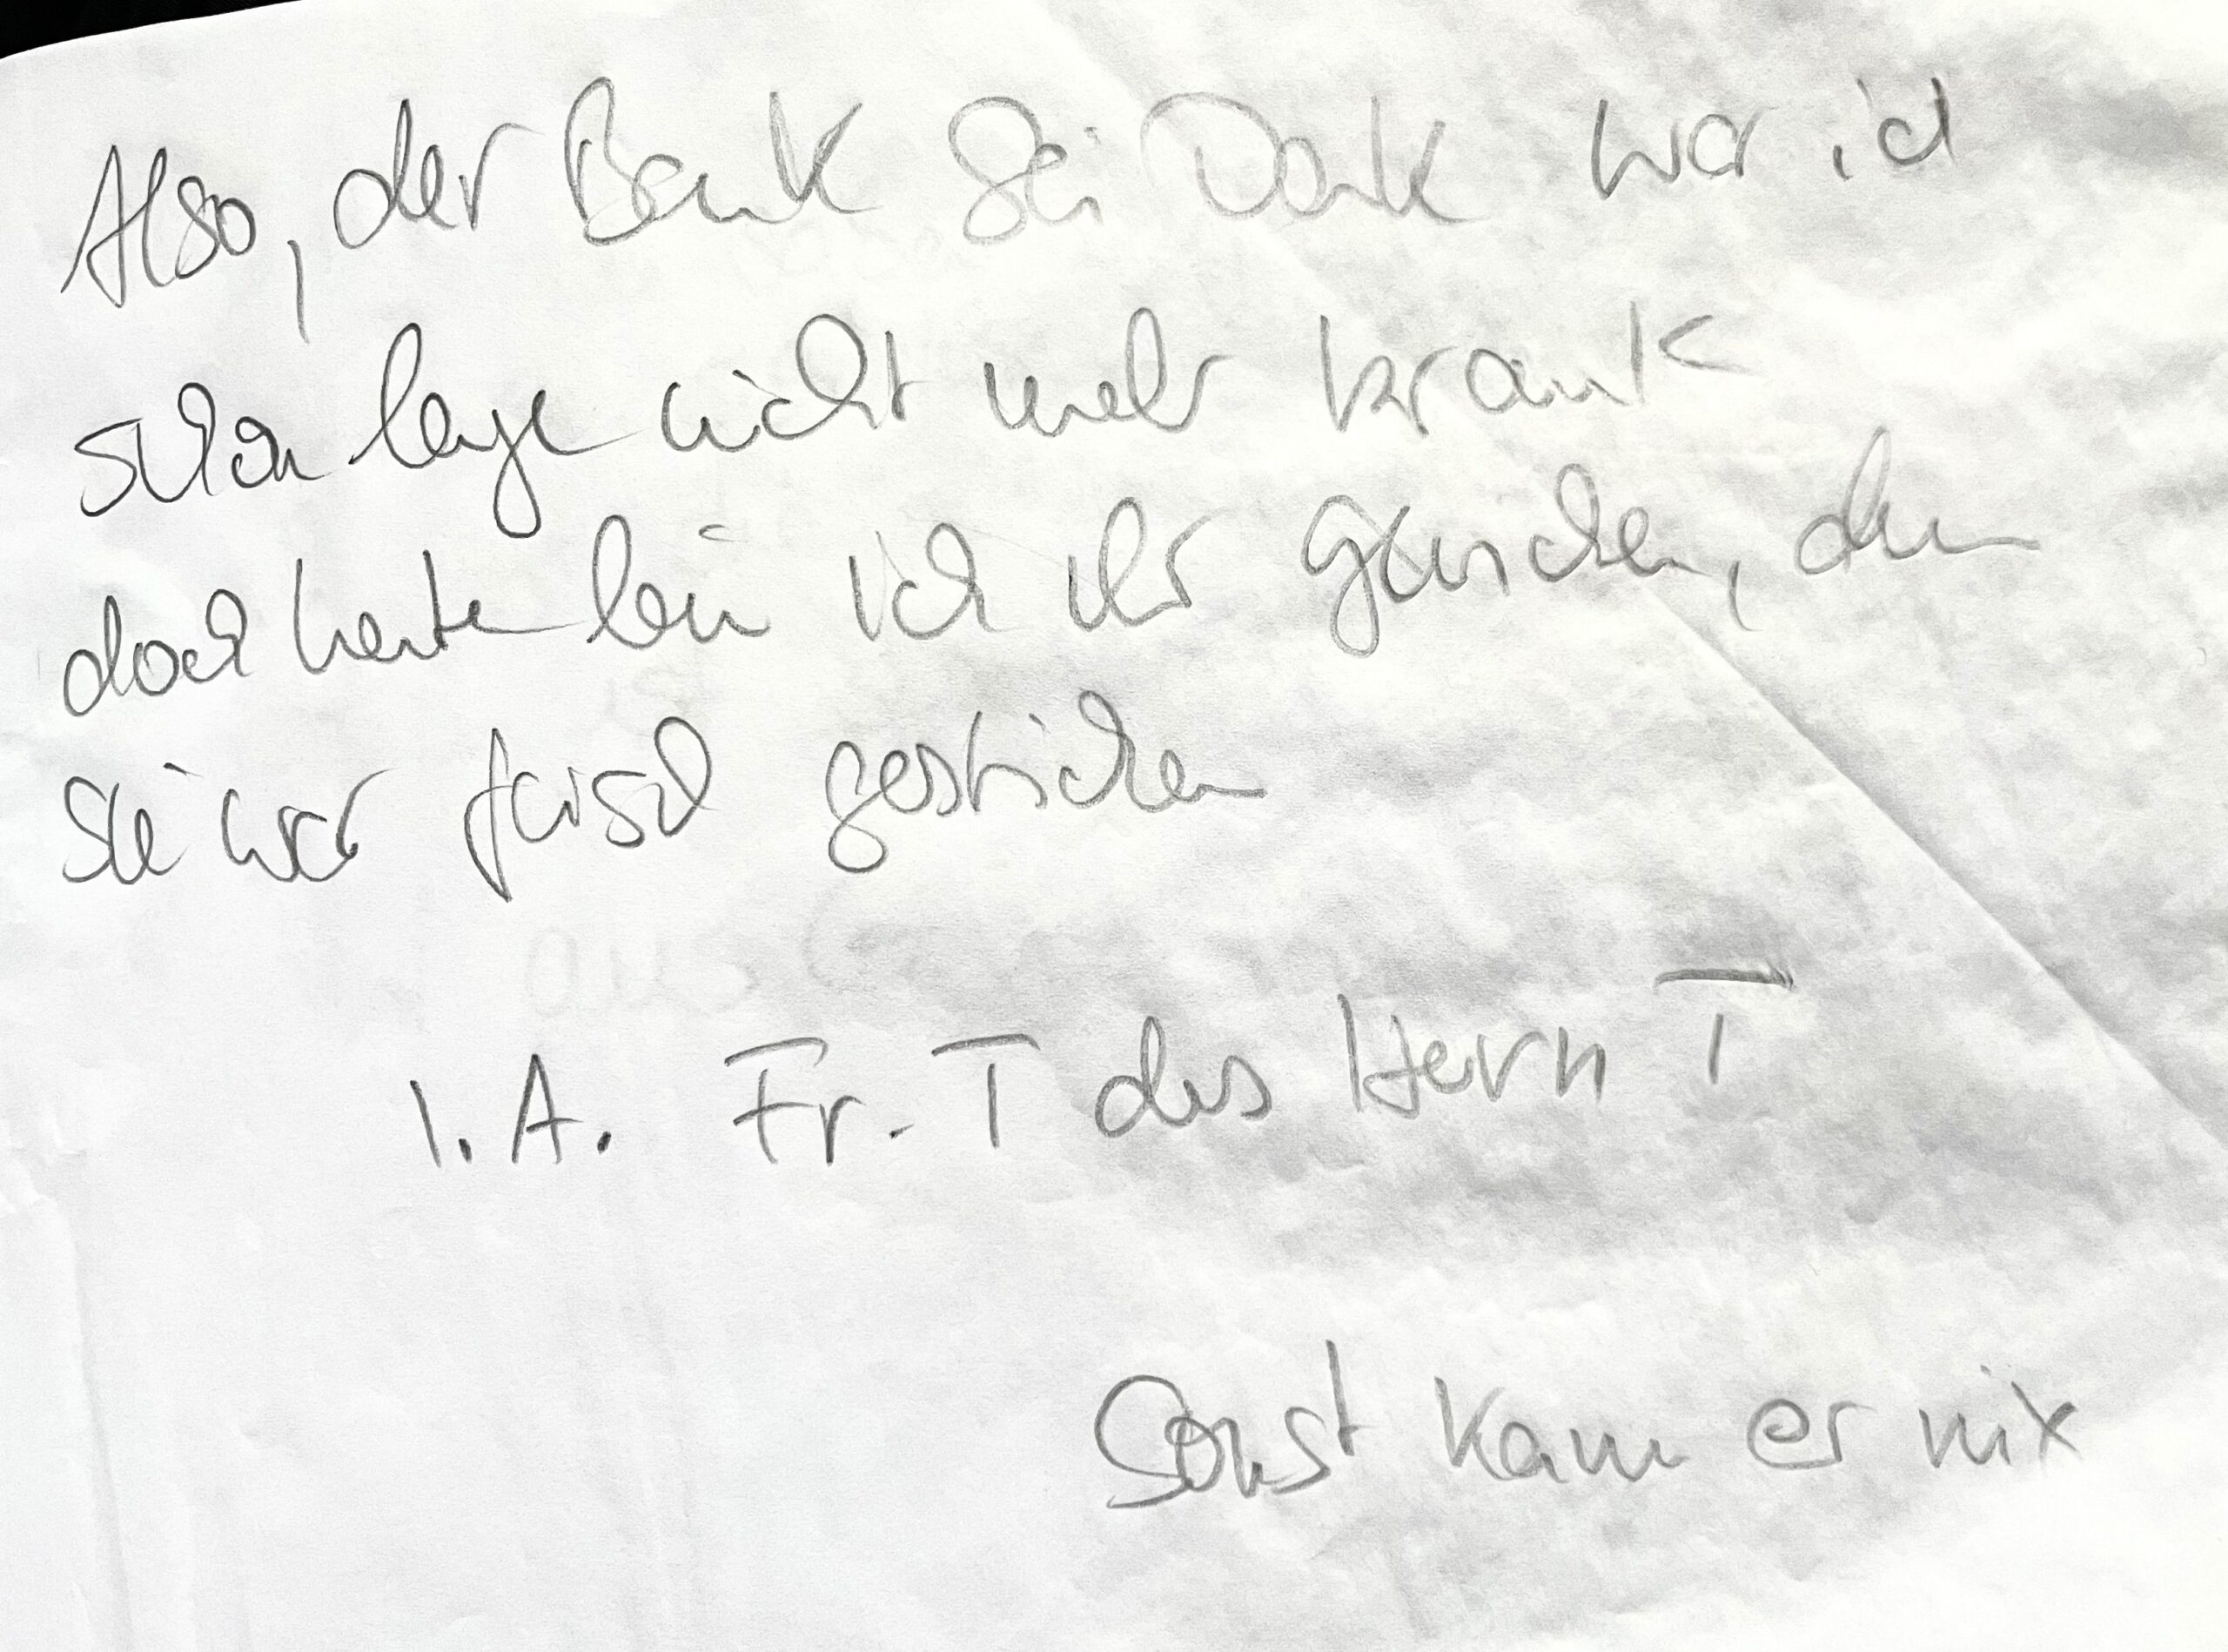 Also, der Bank sei Dank war ich
schon lange nicht mehr krank
doch heute bin ich ihr gewichen, denn
sie war frisch gestrichen
I.A. Fr. T des Herrn T
Sonst kann er nix